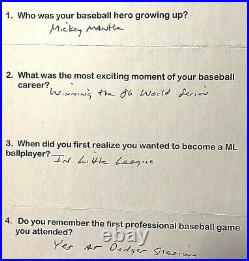 1. Who was your baseball hero growing up?
Mickey Mantle
2. What was the most exciting moment of your baseball
career?
Winning the 86 World Series
3. When did you first realize you wanted to become a ML
ballplayer?
In Little League
4. Do you remember the first professional baseball game
you attended?
Yes At Dodger Stadium